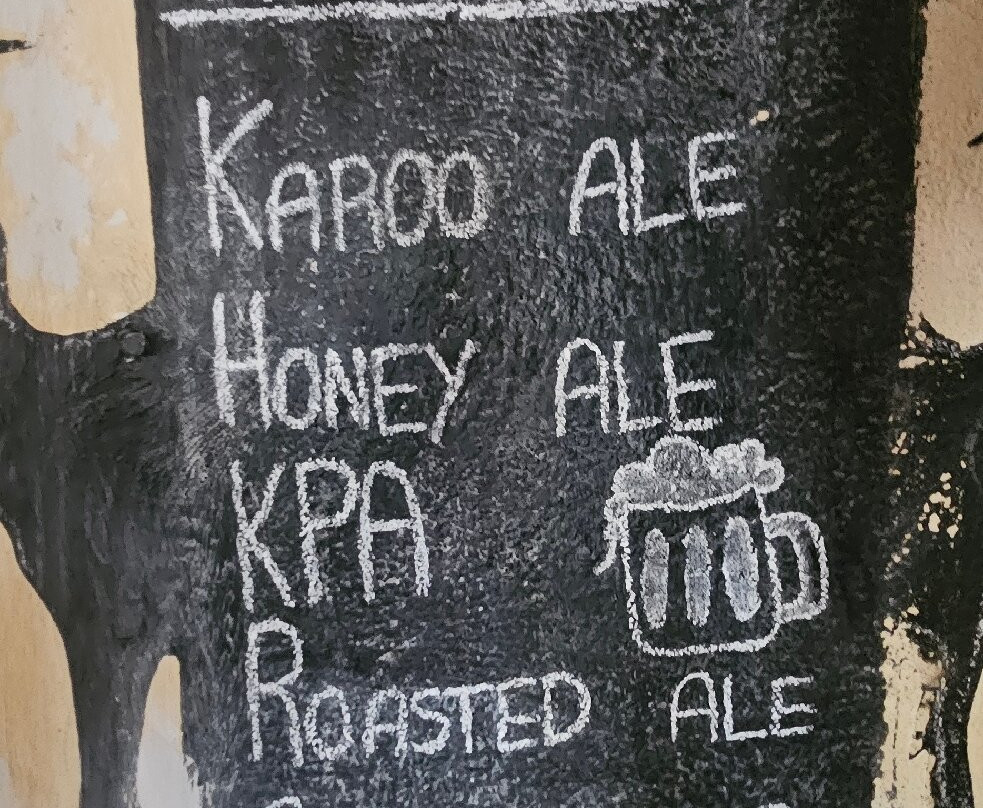 KAROO ALE
HONEY ALE
KPA
ROASTED ALE